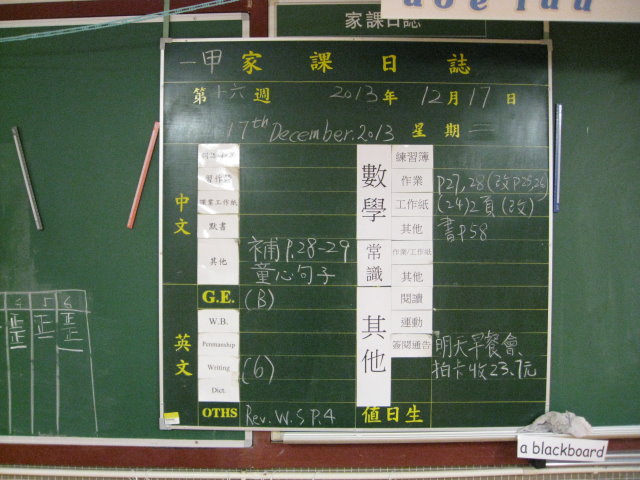 家課日誌
一甲家課日誌
第十六週 2013年12月17日
17th December.2013 星期二
中文
習作簿
課業工作紙
默書
其他 補 P.28-29
童心句子
G.E. (B)
英文
W.B.
Penmanship
Writing (6)
Dict.
OTHS Rev. W.S P.4
數學
練習簿
作業 P27,28(改P25,26)
工作紙 (24)2頁(改)
其他 書P58
常識
作業/工作紙
其他
其他
閱讀
運動
簽閱通告 明天早餐會、
拍卡收23.1元
值日生
正 正 正
a blackboard